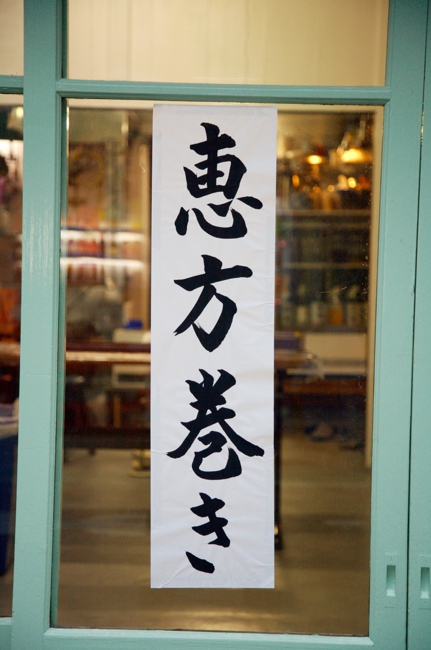 恵方巻き